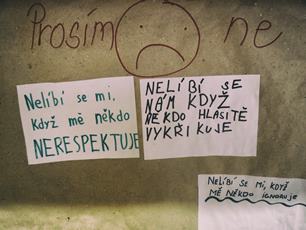 Prosím ne
Nelíbí se mi,
když mě někdo
NERESPEKTUJE
NELÍBÍ SE
NÁM KDYŽ
NĚKDO HLASITĚ
VYKŘIKUJE
NELÍBÍ SE MI, KDYŽ
MĚ NĚKDO IGNORUJE